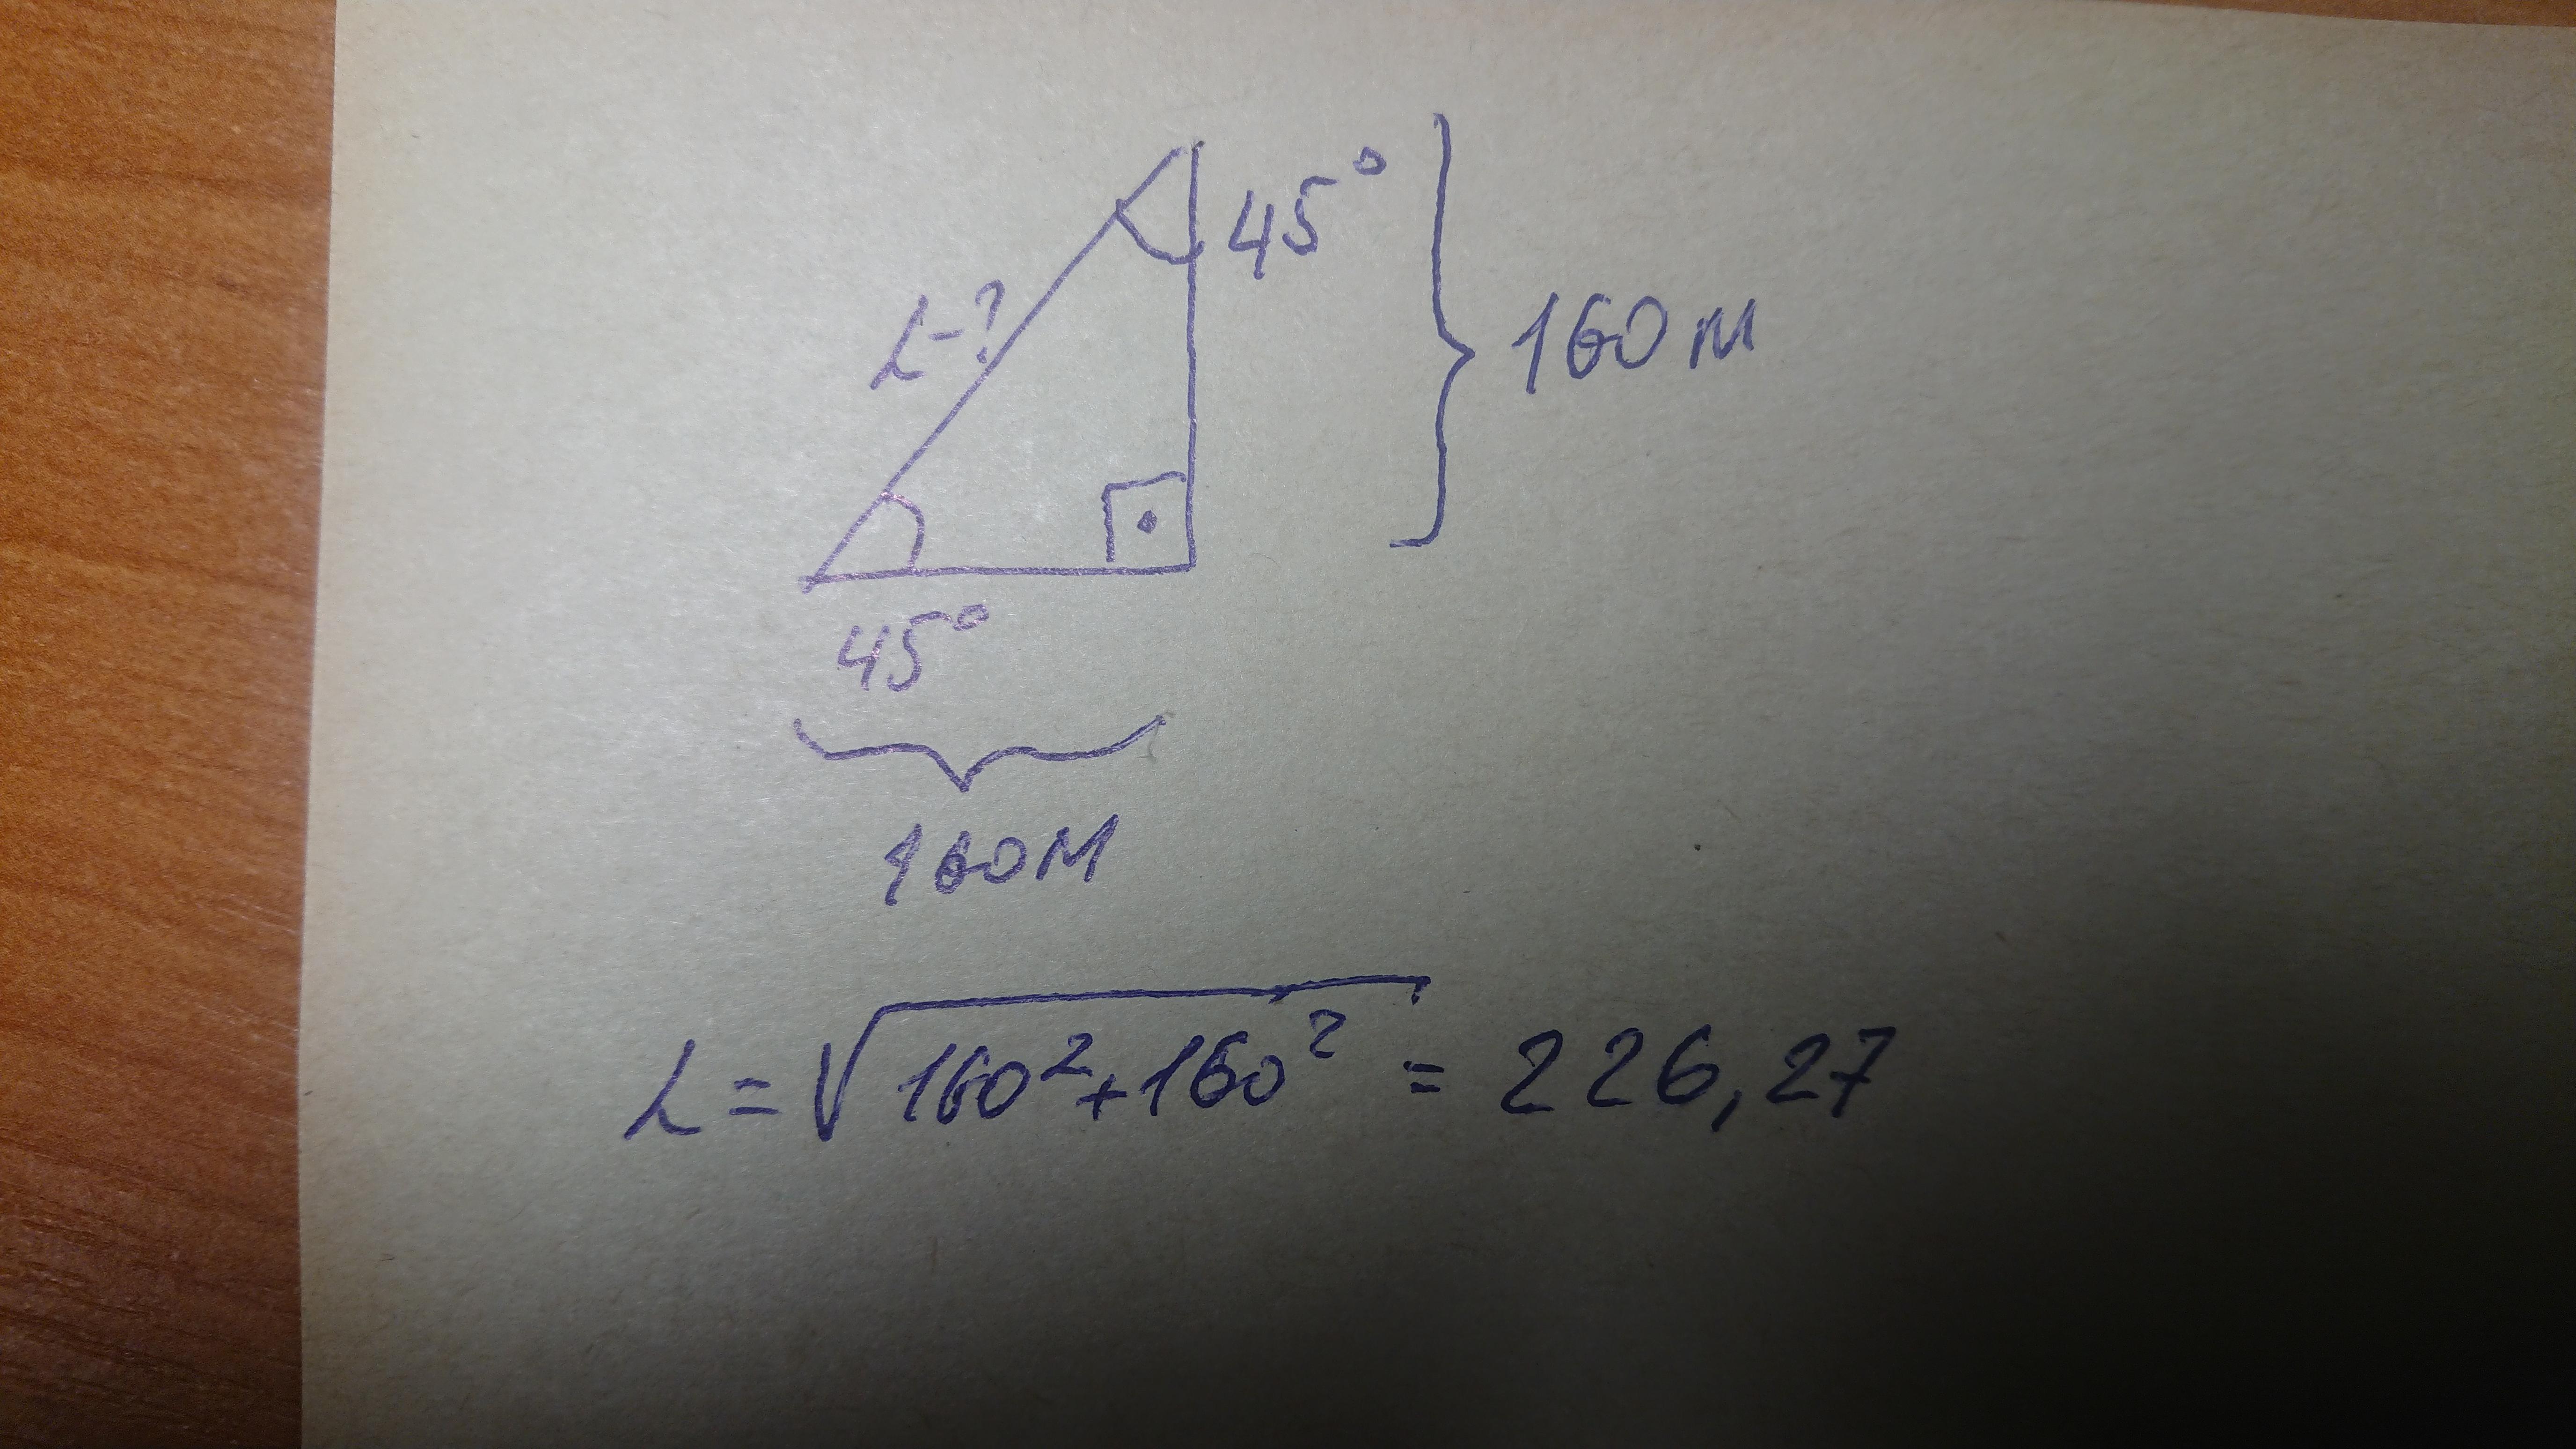 45°
L-?
160 м
45°
160 м
L = √160²+160² = 226,27